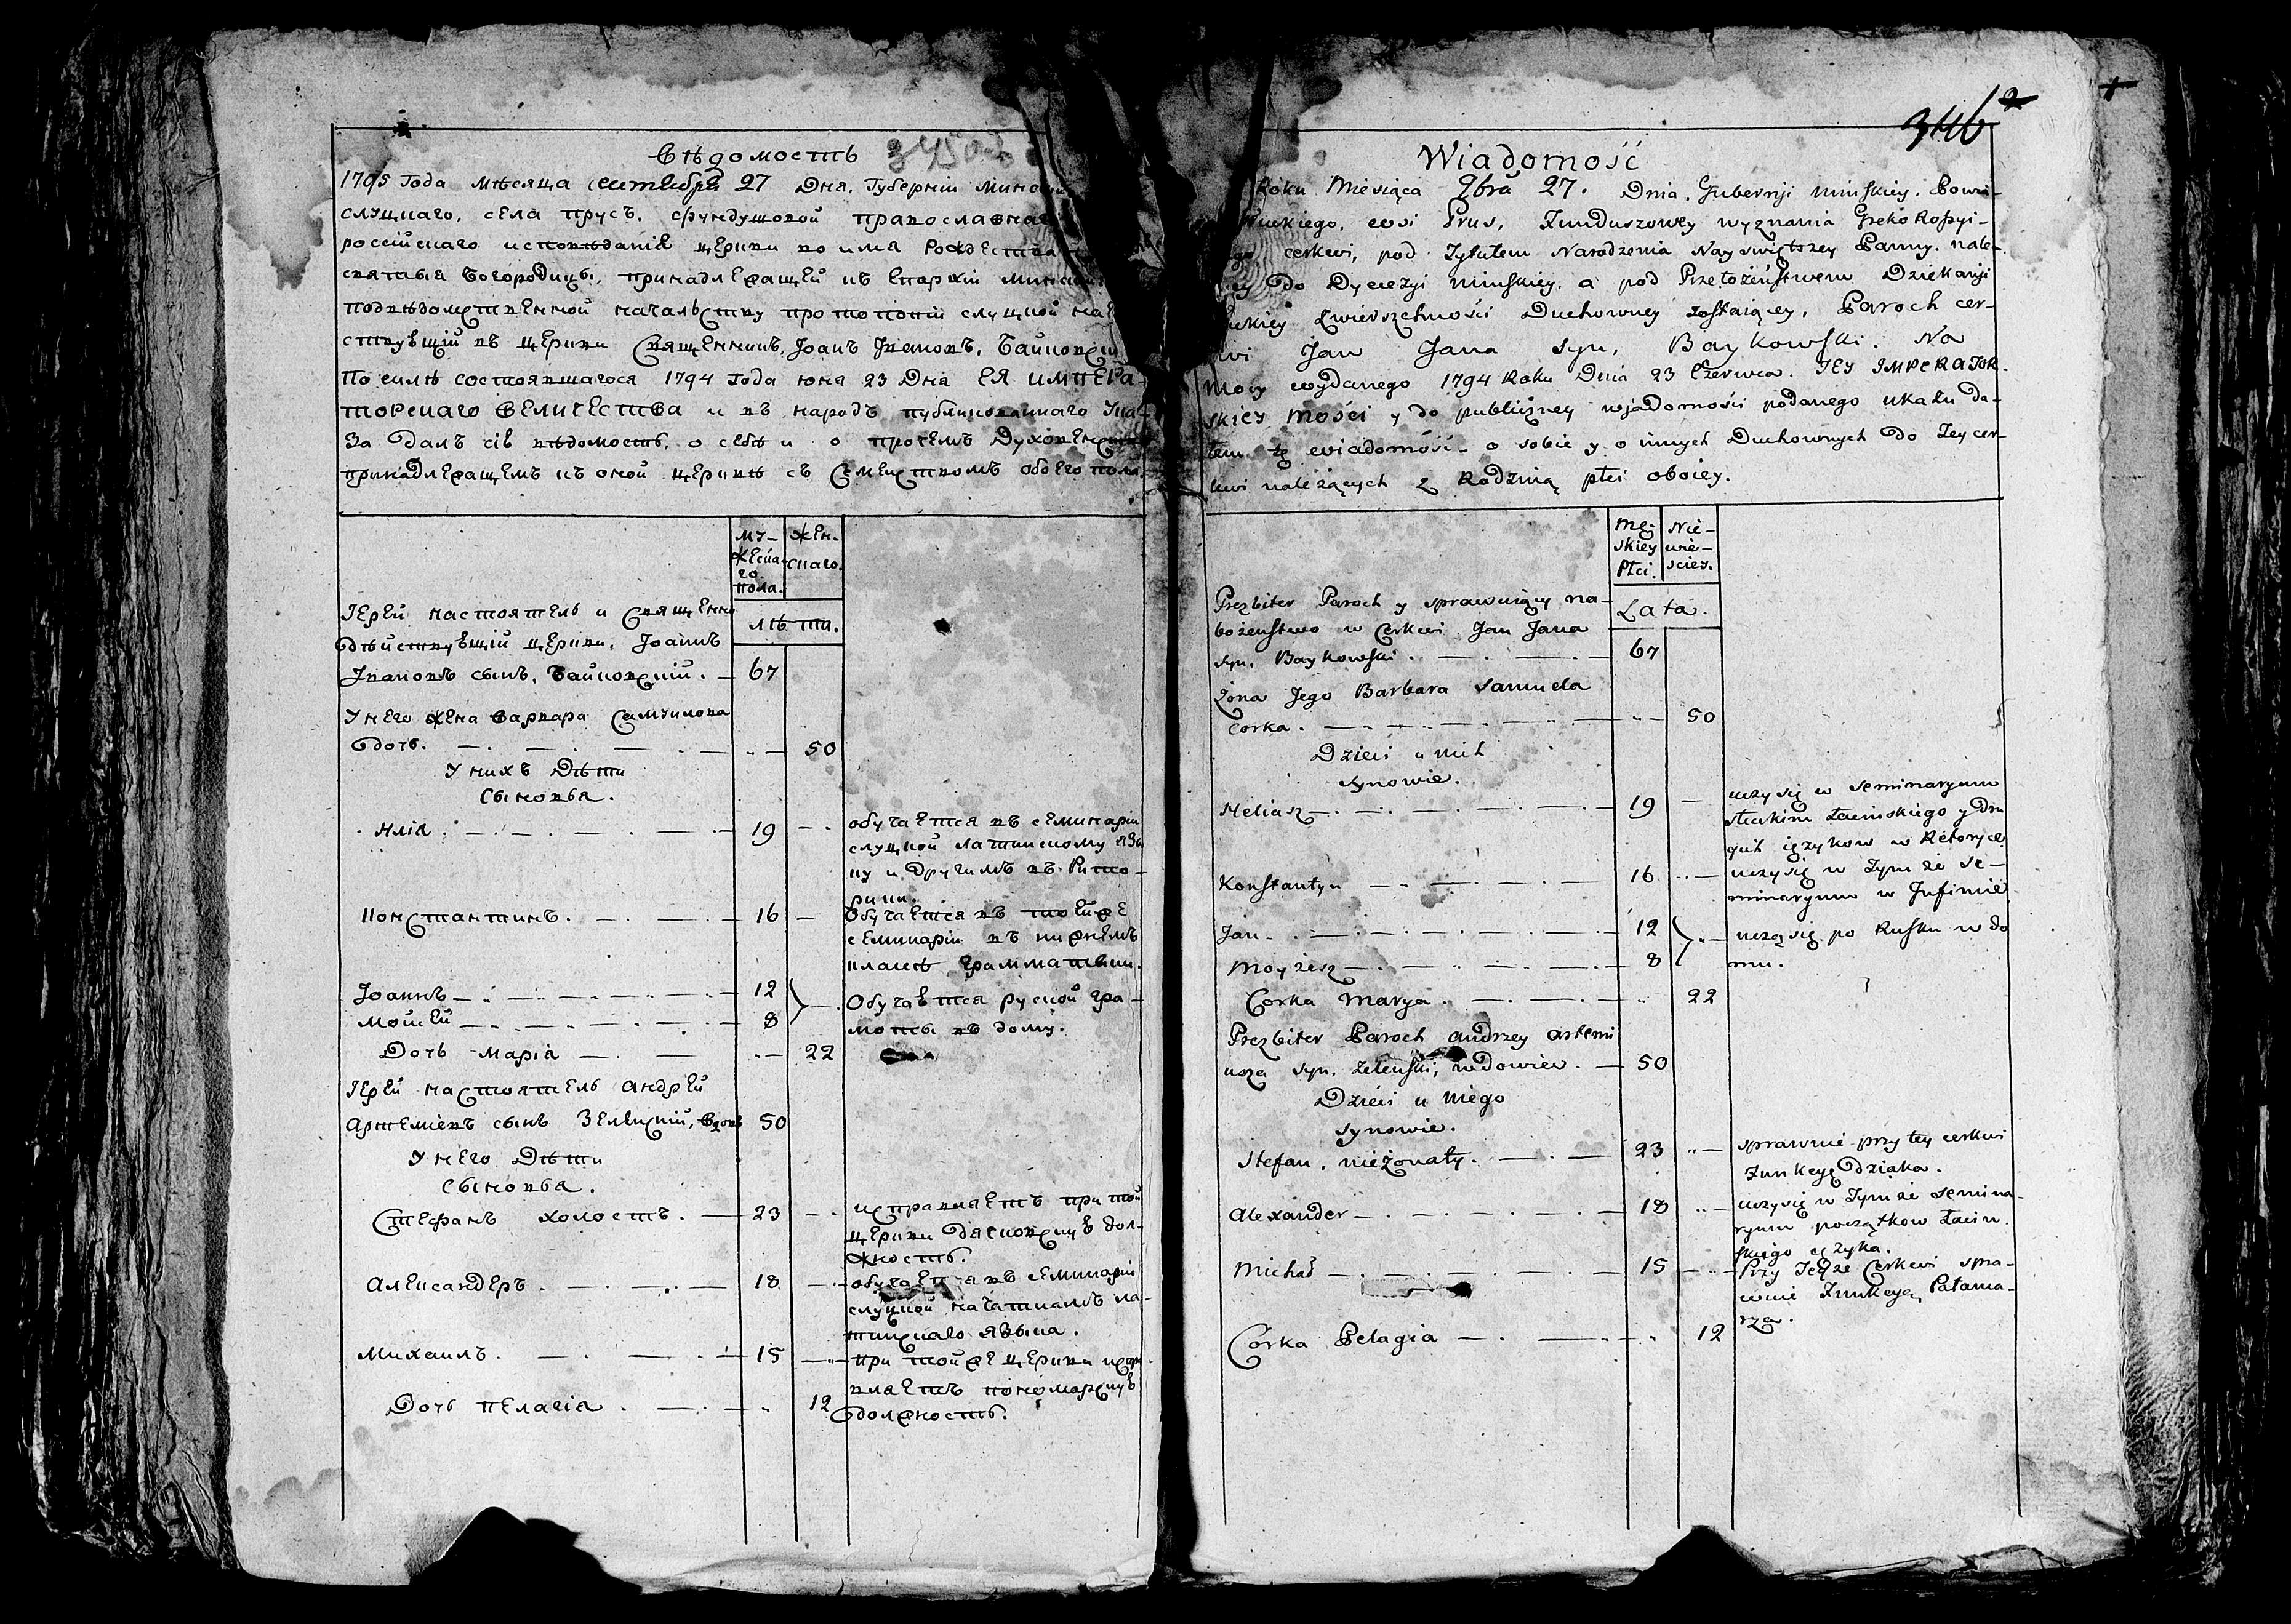 Вѣдомость
1795 Года Мѣсяца сентебря 27 Дня, Губерніи
слуцкаго, села прусъ, фундушовой православнаго
россійскаго исповѣданія церкви во имя Рождества
святыя Богородицы, принадлежащей къ Епархіи
подвѣдомственной начальству протопопіи слуцкой
ствующій въ церкви Священникъ, Іоанъ Ивановъ, Байковскій
По силѣ состоявшагося 1794 года юня 23 Дня ЕЯ ИМПЕРА-
ТОРСКАГО ВЕЛИЧЕСТВА и въ народъ публикованнаго Ука-
за Далъ сію вѣдомость, о себѣ и о протчемъ Духовенствѣ
принадлежащемъ къ оной церквѣ съ Семействомъ обоего пола.
му- жен-
жеска- скаго.
го
пола.
лѣта.
Іерей настоятель и Священно
дѣйствующій церкви, Іоаннъ
Ивановъ сынъ, Байковскій. — 67
У него жена Варвара Самуилова
Дочь. — 50
У нихъ Дѣти
Сыновья.
Илія. — 19 — обучается въ семинаріи
слуцкой латинскому язы
ку и другимъ въ Рито-
рики.
Константинъ. — 16 — Обучается въ тойже
семинаріи въ нижнемъ
класѣ граммативки.
Іоаннъ — 12 — Обучаются руской гра-
Мойсей — 8 моты въ дому.
Дочь Марія — 22
Іерей настоятель Андрей
Артеміевъ сынъ Зеленскій, вдовъ 50
У него Дѣти
Сыновья.
Стефанъ холостъ. — 23 — исправляетъ при той
церкви дячковскую дол-
жность.
Александеръ. — 18 — обучается въ семинаріи
слуцкой начаткамъ ла-
тинскаго языка.
Михаилъ. — 15 — при тойже церкви испра
вляетъ пономарскую
Дочь Пелагія. — 12 должность.
346
Wiadomość
Roku Miesiąca 9bra 27. Dnia, Gubernji Minskiey, Powia-
wsi Prus, Funduszowey wyznania Greko Rossyi-
cerkwi, pod Tytułem Narodzenia Nayświętszey Panny, nale-
do Dyecezyi Minskiey, a pod Przełożeństwem Dziekanji
Zwierszchności Duchowney zostaiącey, Paroch cer-
kwi Jan Jana syn, Baykowski. Na
Mocy wydanego 1794 Roku Dnia 23 Czerwca. JEY IMPERATOR-
SKIEY MOŚCI y do publiczney wjadomości podanego ukazu da-
łem tę wiadomość o sobie y o innych Duchownych do Tey cer-
kwi należących z Rodziną płci oboiey.
Mę- Nie-
skiey wie-
Płci. sciey.
Lata.
Prezbiter Paroch y sprawuiący na-
bożeństwo w Cerkwi Jan Jana
syn, Baykowski. — 67
Żona Jego Barbara Samuela
Corka. — 50
Dzieci u nich
synowie.
Heliasz — 19 — uczy się w Seminaryum
słuckim Łacinskiego y dru
gich ięzykow w Retoryce
Konstantyn — 16 — uczy się w Tymże Se-
minaryum w Infimie
Jan — 12 — uczą się po Rusku w do
Moyżesz — 8 mu.
Corka Marya — 22
Prezbiter Paroch Andrzey Artemi
usza syn, Zelenski, wdowiec. — 50
Dzieci u niego
synowie.
Stefan, nieżonaty. — 23 — sprawuie przy tey cerkwi
Funkcyę Dziaka.
Alexander — 18 — uczy się w Tymże Semina-
ryum początkow Łacin-
skiego ięzyka.
Michał — 15 — Przy Teyże Cerkwi spra-
wuie Funkcyę Pałama-
rza.
Corka Pelagia — 12